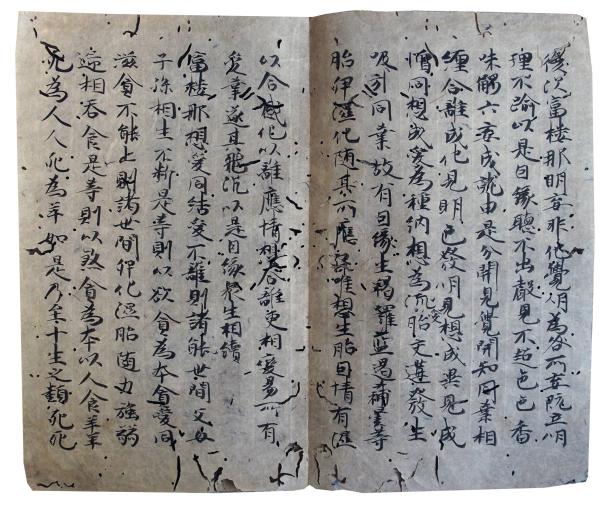 復次富楼那明妄非他覺明為咎所妄既立明
理不踰以是因縁聽不出聲見不超色色香
味觸六妄成就由是分開見覺聞知同業相
纏合離成化見明色發明見想成異見成
憎同想成愛為種納想為流胎交遘發生
吸引同業故有因縁生羯羅藍遏蒲曇等
胎卵湿化随其所應卵唯想生胎因情有湿
以合感化以離應情想合離更相變易所有
受業逐其飛沉以是因縁衆生相續
富楼那想愛同結愛不離則諸能世間父母
子孫相生不断是等則以欲貪為本貪愛同
滋貪不能止則諸世間卵化湿胎随力強弱
逓相吞食是等則以殺貪為本以人食羊羊
死為人人死為羊如是乃至十生之類死死